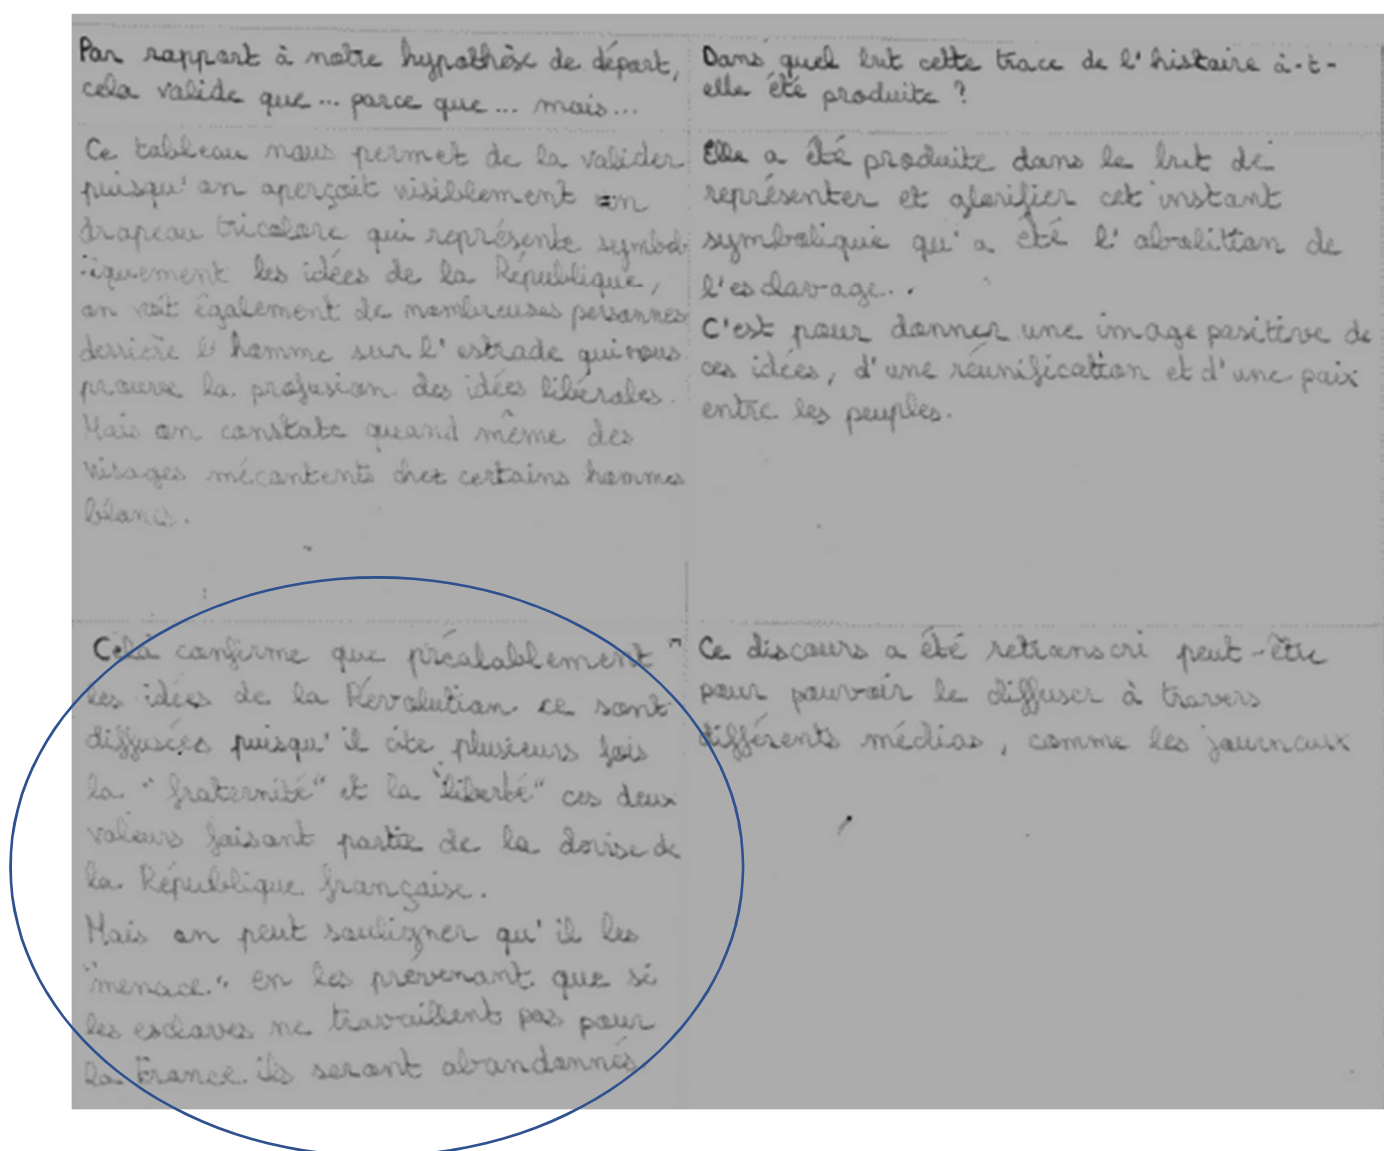 Par rapport à notre hypothèse de départ,
cela valide que ... parce que ... mais ...
Dans quel but cette trace de l'histoire à-t-
elle été produite ?
Ce tableau nous permet de la valider
puisqu'on aperçoit visiblement un
drapeau tricolore qui représente symbol-
iquement les idées de la République,
on voit également de nombreuses personnes
derrière l'homme sur l'estrade qui nous
prouve la profusion des idées libérales.
Mais on constate quand même des
visages mécontents chez certains hommes
blancs.
Elle a été produite dans le but de
représenter et glorifier cet instant
symbolique qu'a été l'abolition de
l'esclavage..
C'est pour donner une image positive de
ces idées, d'une réunification et d'une paix
entre les peuples.
Celà confirme que préalablement
les idées de la Révolution ce sont
diffusées puisqu'il cite plusieurs fois
la "fraternité" et la "liberté" ces deux
valeurs faisant partie de la devise de
la République française.
Mais on peut souligner qu'il les
"menace" en les prévenant que si
les esclaves ne travaillent pas pour
la France ils seront abandonnés
Ce discours a été retranscri peut-être
pour pouvoir le diffuser à travers
différents médias, comme les journaux